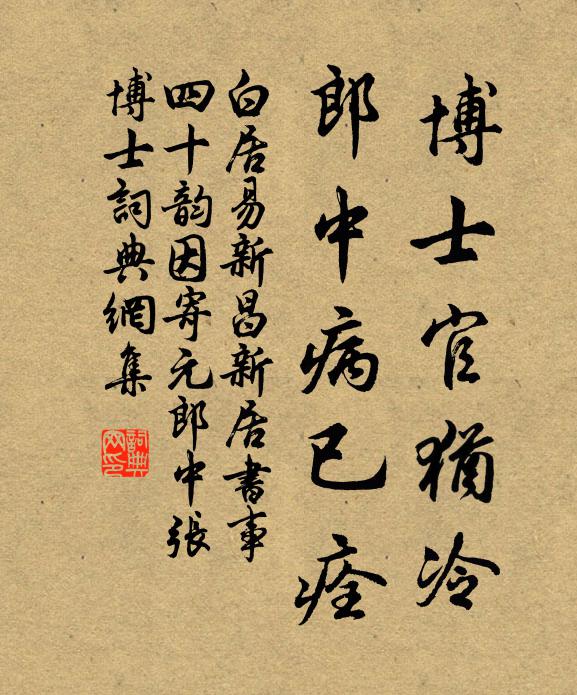 博士官猶冷
郎中病已痊
白居易新昌新居書事
四十韵因寄元郎中張
博士詞典網集
詞典網印